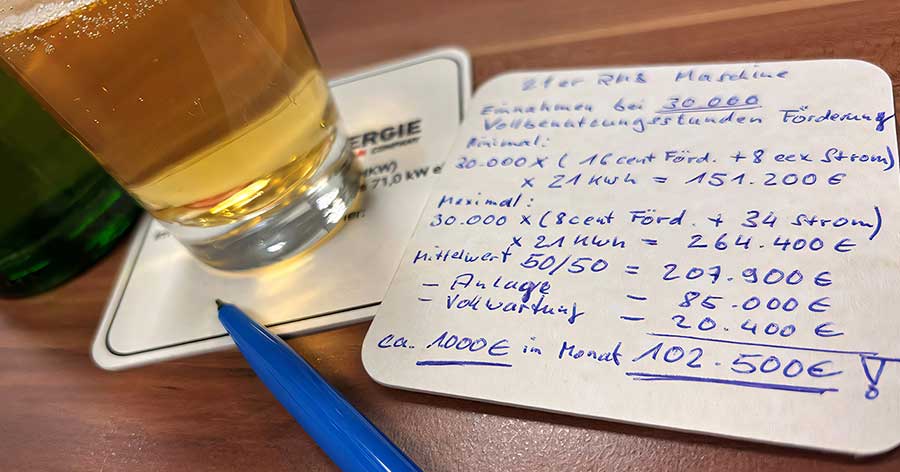 ERGIE
COMPANY
KW)
71,0 kW e
2ter RHS Maschine
Einnahmen bei 30.000
Vollbenutzungsstunden Förderung
Minimal:
30.000 x (16 cent Förd. + 8 eex Strom)
x 21 KWh = 151.200 €
Maximal:
30.000 x (8 cent Förd. + 34 Strom)
x 21 KWh = 264.400 €
Mittelwert 50/50 = 207.900 €
- Anlage - 85.000 €
- Vollwartung - 20.400 €
ca. 1000 € in Monat 102.500 € !